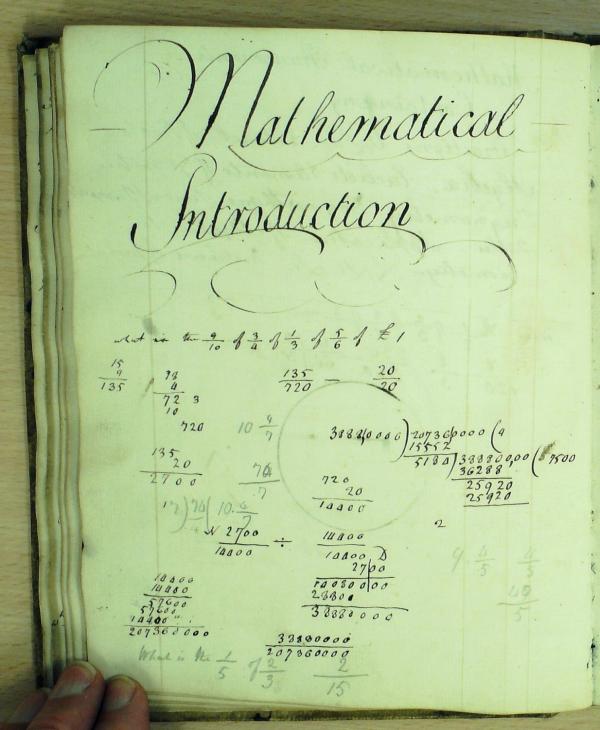 Mathematical
Introduction
what is the 9/10 of 3/4 of 1/3 of 5/6 of £ 1
15
9
135
4
72 3
10
720
135/720 — 20/20
10 4/7
135
20
2700
720
20
14400
38880000)207360000(
15552
5184
36288
25920
25920
7500
2
N 2700/14400 ÷ 14400/14400 D
2700
10080000
28800
38880000
14400
14400
57600
57600
14400
207360000
38880000/207360000
9 4/5 4/5
49/5
What is the 1/5 of 2/3 2/15